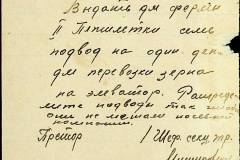 Видать дм ферми
II Пятилетки семь
подвод на один день
дм перевозки зерна
на элеватор. Распреде
лите подводы так чтобы
они не мешали посевной
кампании.
Претор / Шеф. секц. тр.